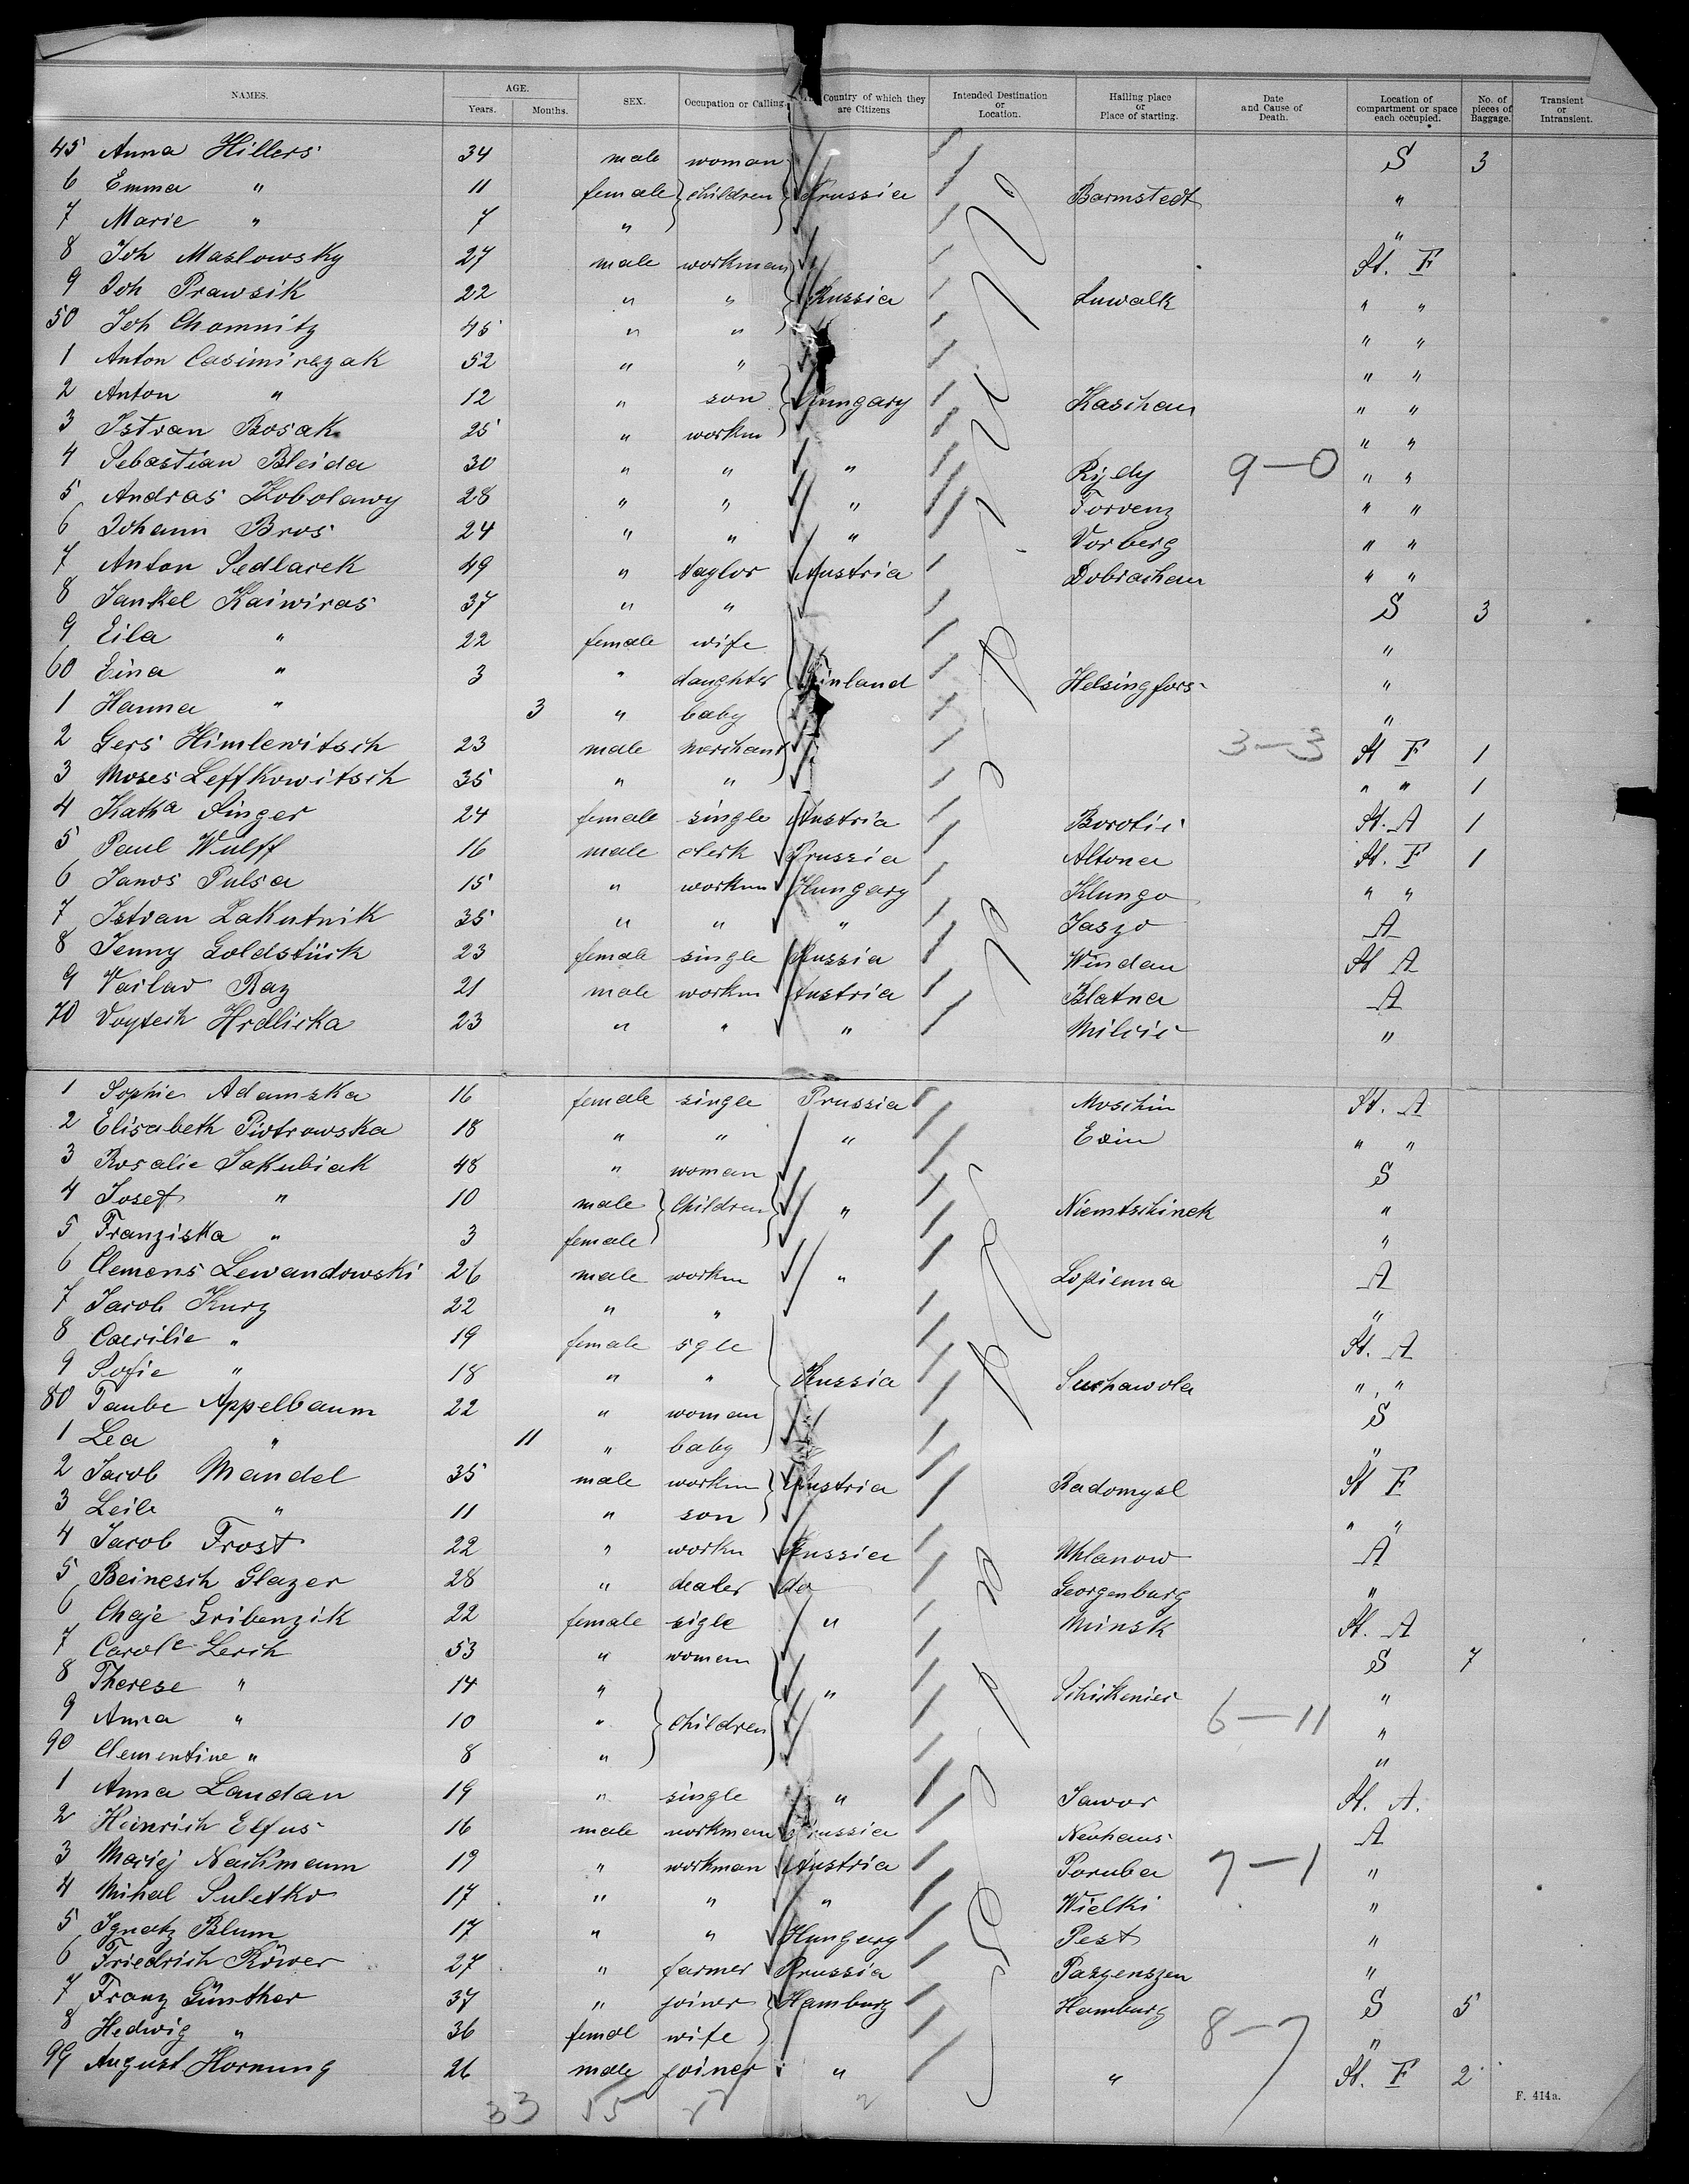 NAMES. AGE. Years. Months. SEX. Occupation or Calling. Country of which they are Citizens Intended Destination or Location. Hailing place or Place of starting. Date and Cause of Death. Location of compartment or space each occupied. No. of pieces of Baggage. Transient or Intransient.
45 Anna Hillers 34 male woman S 3
6 Emma " 11 female children Prussia Barmstedt "
7 Marie " 7 " "
8 Joh Maslowsky 27 male workman St. F
9 Joh Prawsik 22 " " Russia Suwalk " "
50 Joh Chomnitz 45 " " " "
1 Anton Casimirezak 52 " " " "
2 Anton " 12 " son Hungary Kaschau " "
3 Istvan Bosak 25 " workm " "
4 Sebastian Bleida 30 " " " Rijdy 9-0 " "
5 Andras Kobolawy 28 " " " Torvenz " "
6 Johann Bros 24 " " " Vorberg " "
7 Anton Sedlacek 49 " taylor Austria Dobrichau " "
8 Jankel Kaiwiras 37 " " S 3
9 Eila " 22 female wife "
60 Eina " 3 " daughter Finland Helsingfors "
1 Hanna " 3 " baby "
2 Gers Himlewitsch 23 male merchant 3-3 St F 1
3 Moses Leffkowitsch 35 " " " " 1
4 Katha Singer 24 female single Austria Borotic St. A 1
5 Paul Wulff 16 male clerk Prussia Altona St. F 1
6 Janos Pulsa 15 " workm Hungary Klungo " "
7 Istvan Zakutnik 35 " " " Jaszo A
8 Jenny Goldstück 23 female single Russia Windau St A
9 Vaclav Raz 21 male workm Austria Blatna A
70 Voytech Hrdlicka 23 " " " Milcic "
1 Sophie Adamska 16 female single Prussia Moschin St. A
2 Elisabeth Piotrowska 18 " " " Exin " "
3 Rosalie Jakubiak 48 " woman S
4 Josef " 10 male Children " Niemtschinek "
5 Franziska " 3 female "
6 Clemens Lewandowski 26 male workm " Lopienna A
7 Jacob Kurz 22 " " "
8 Caecilie " 19 female sgle St. A
9 Sofie " 18 " " Russia Suchawola " "
80 Taube Appelbaum 22 " woman S
1 Lea " 11 " baby "
2 Jacob Mandel 35 male workm Austria Radomysl St F
3 Leib " 11 " son " "
4 Jacob Frost 22 " workm Russia Uhlanow A
5 Beinesch Glazer 28 " dealer do Georgenburg "
6 Chaje Gribenzik 22 female sigle " Minsk St. A
7 Carole Lerch 53 " woman S 7
8 Therese " 14 " " Schickenies "
9 Anna " 10 " children 6-11 "
90 Clementine " 8 " "
1 Anna Landau 19 " single " Jawor St. A.
2 Heinrich Elfus 16 male workman Prussia Neuhaus A
3 Maciej Nachmann 19 " workman Austria Poruba 7-1 "
4 Mihal Suletko 17 " " " Wielki "
5 Ignatz Blum 17 " " Hungary Pest "
6 Friedrich Röwer 27 " farmer Prussia Pazgenszen "
7 Franz Günther 37 " joiner Hamburg Hamburg S 5
8 Hedwig " 36 femal wife 8-7 "
99 August Hornung 26 male joiner " " St. F 2
33 55
F. 414a.